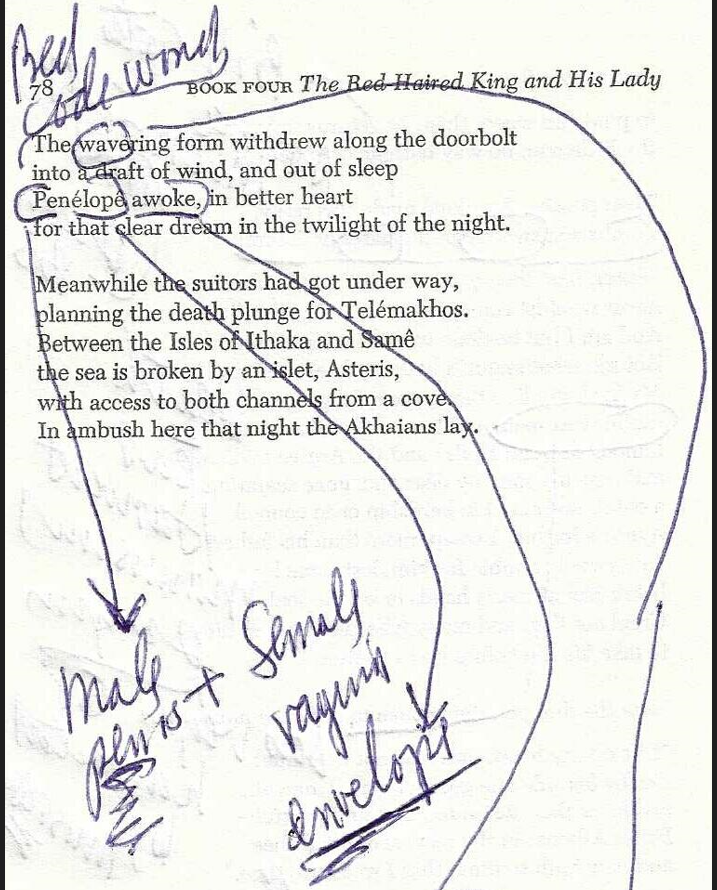 Bed
78
Code words
BOOK FOUR The Red-Haired King and His Lady
The wavering form withdrew along the doorbolt
into a draft of wind, and out of sleep
Penélopê awoke, in better heart
for that clear dream in the twilight of the night.
Meanwhile the suitors had got under way,
planning the death plunge for Telémakhos.
Between the Isles of Ithaka and Samê
the sea is broken by an islet, Asteris,
with access to both channels from a cove.
In ambush here that night the Akhaians lay.
male
penis + female
vagina
envelope